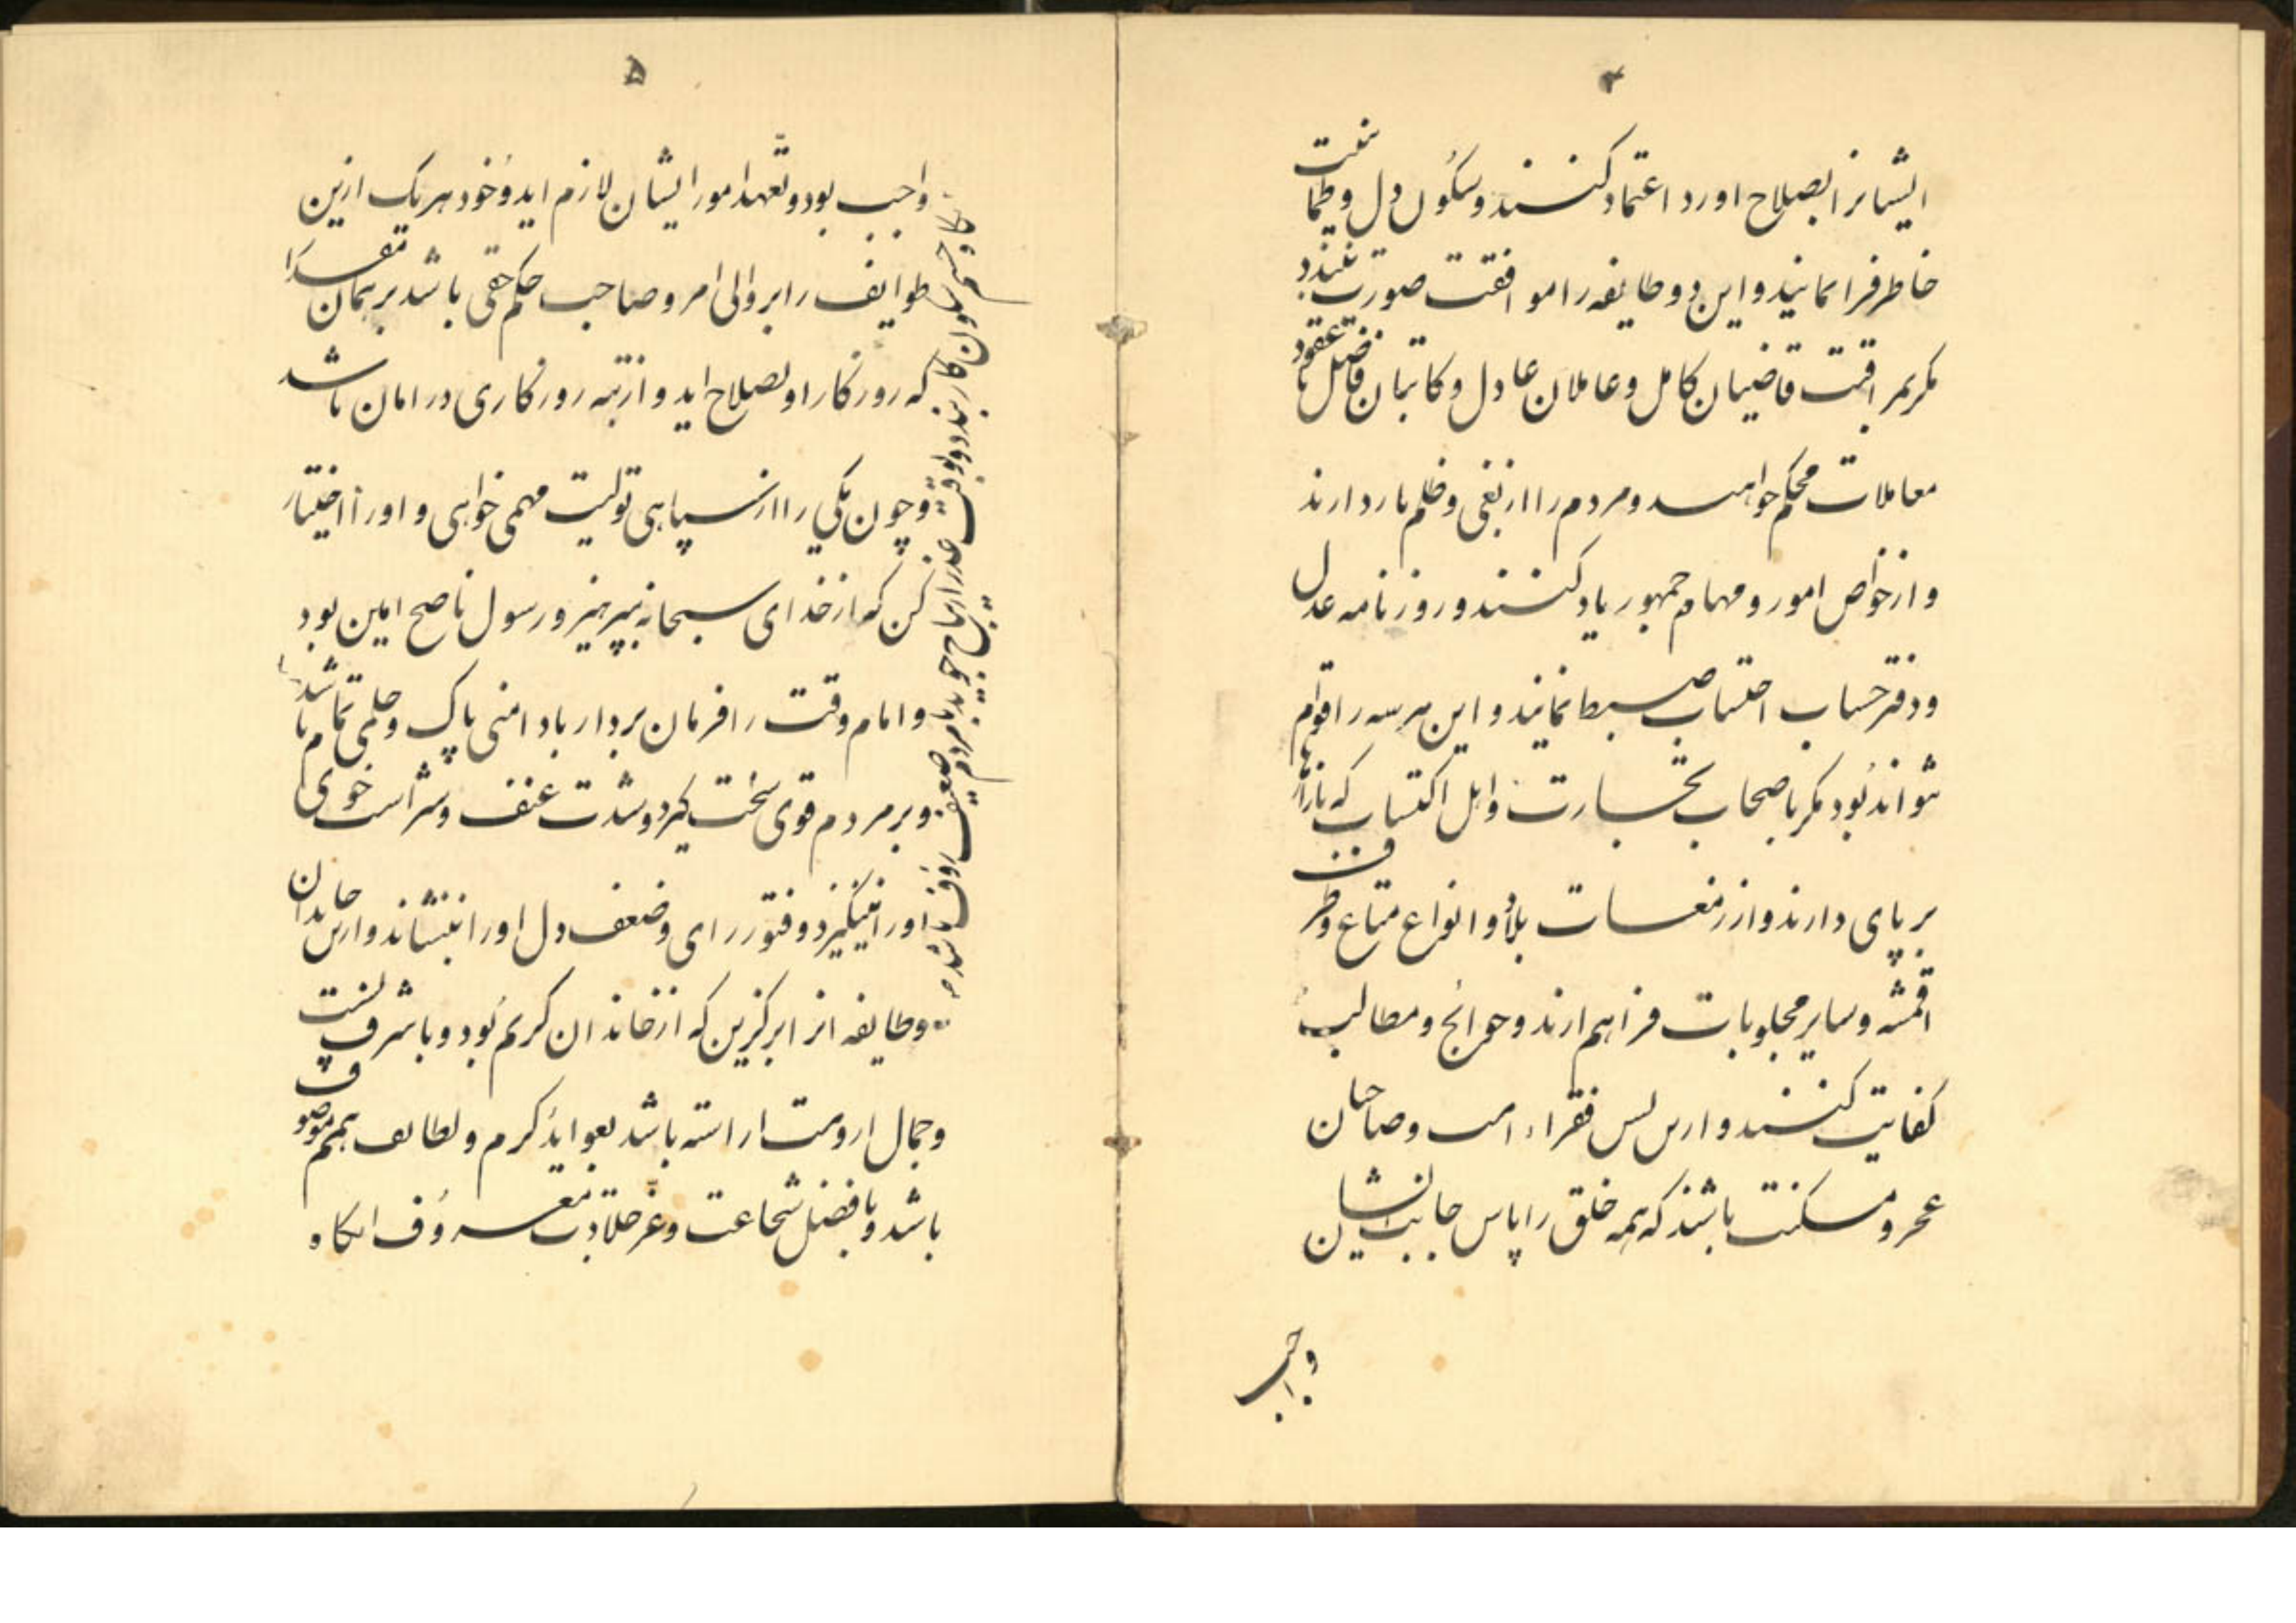 ۴
ایشانرا بصلاح اورد اعتماد کنند و سکون دل و طمانینت
خاطر فرا نمایند و این دو طایفه را موافقت صورت نبندد
مکر بمرافقت قاضیان کامل و عاملان عادل و کاتبان فاضل تا عقود
معاملات محکم خواهند و مردم را از بغی و ظلم باز دارند
و از خواص امور و مهام جمهور یاد کنند و روزنامه عدل
و دفتر حساب احتساب ضبط نمایند و این هر سه را قوام
نتواند بود مکر باصحاب تجارت و اهل اکتساب که بازارها
بر پای دارند و از بلاد و انواع متاع و ظرف
اقمشه و سایر مجلوبات فراهم ارند و حوائج و مطالب
کفایت کنند و ازین پس فقراء امت و صاحبان
عجز و مسکنت باشند که همه خلق را پاس جانب ایشان
واجب
۵
واجب بود و تعهد امور ایشان لازم اید و خود هر یک ازین
طوایف را بر والی امر و صاحب حکم حقی باشد بر همان مقدار
که روزکار او بصلاح اید و از تبه روزکاری در امان باشد
و چون یکی را از سپاهی تولیت مهمی خواهی و او را اختیار
کن که از خدای سبحانه بپرهیزد و رسول ناصح امین بود
و امام وقت را فرمان بردار با دامنی پاک و حلمی تمام باشد
و بر مردم قوی سخت کیرد و شدت عنف و شراست خوی
او را نینکیزد و فتور رای و ضعف دل او را ننشاند و ازین خاندان
و طایفه انرا برکزین که از خاندان کریم بود و با شرف نسبت
و جمال ارومت اراسته باشد بعواید کرم و لطایف همم موصوف
باشد و با فضل شجاعت و عز جلادت معروف انکاه
سکون کار بندد و بوقت عذر ارتیاح جوید با مردم ضعیف رؤف باشد